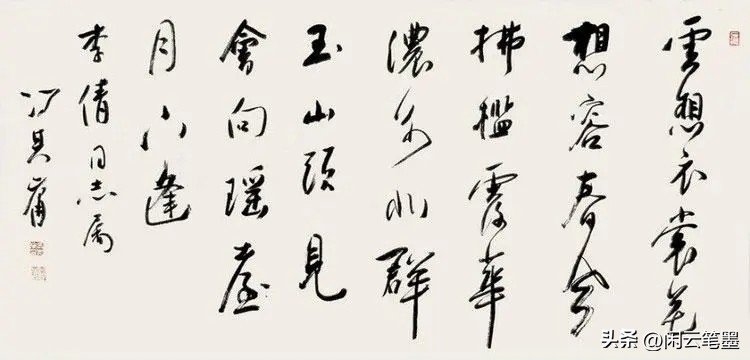 雲想衣裳花
想容春風
拂檻露華
濃若非群
玉山頭見
會向瑶臺
月下逢
李倩同志属
冯其庸
头条 @闲云笔墨